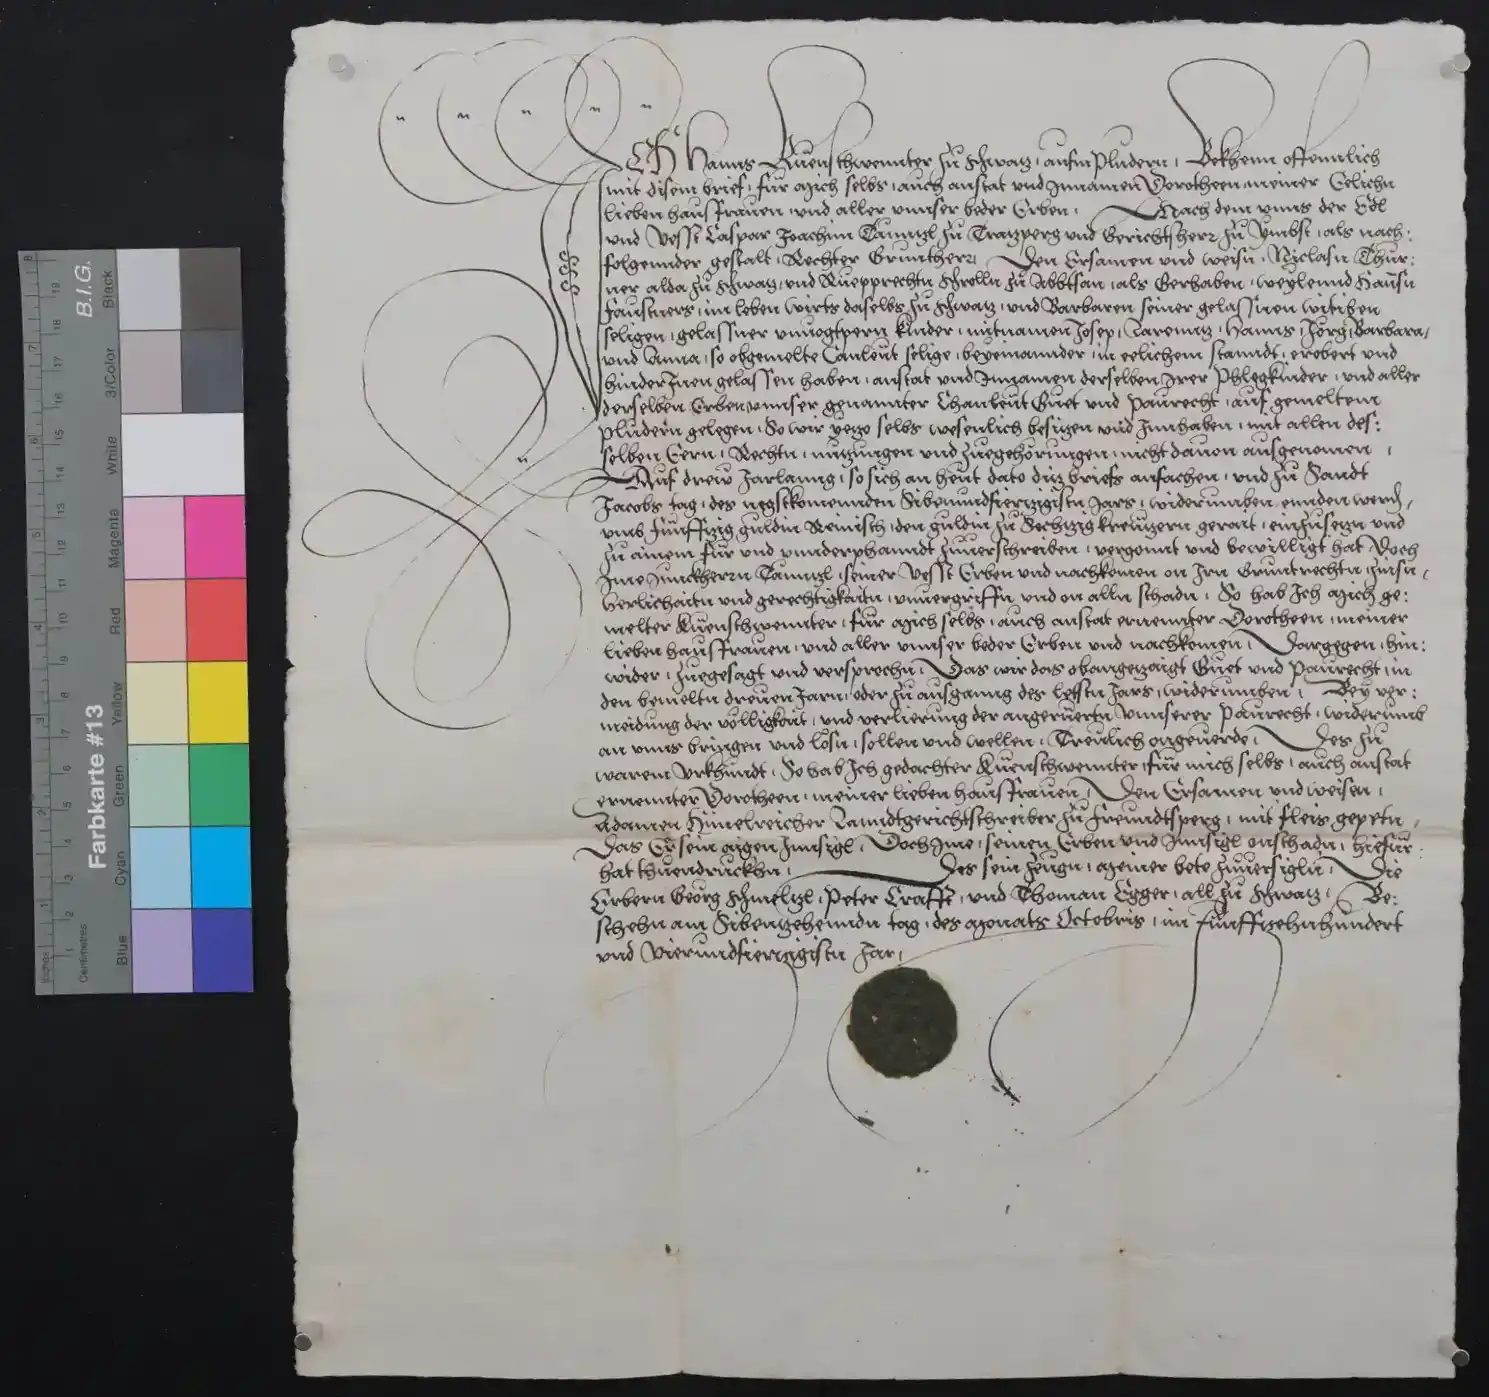 B.I.G.
Farbkarte #13
Black
3/Color
White
Magenta
Red
Yellow
Green
Cyan
Blue
Centimetres
Inches
ICH Hanns Kuenschwennter zu Schwatz, aufm Pludern, Bekhenn offennlich
mit disem brief, für mich selbs, auch anstat vnd Innamen Dorotheen meiner Eelichn
lieben hausfrauen, vnd aller vnnser beder Erben, Nach dem vnns der Edl
vnd Vesst Caspar Joachim Tänntzl zu Tratzperg vnd Gerichtsherr zu Ymbst, als nach:
folgennder gestalt, Rechter Grunther, Den Ersamen vnd weisn, Niclasn Thur:
ner alda zu Schwatz, vnd Ruepprechtn Schrolln zu Abbtsan, als Gerhaben, weylennd Hannsn
Faustners, im leben wirts daselbs zu Schwatz, vnd Barbaren seiner gelassnen witiben
seligen, gelassner vnuogtpern kinder, mitnamen Josep, Larenntz, Hanns, Jörg, Barbara,
vnd Anna, so obgemelte Conleut selige, beyeinannder, in eelichem stanndt, erobert vnd
hinder Jnen gelassen haben, anstat vnd Innamen derselben Irer Phlegkinder, vnd aller
derselben Erben, vnnser genannter Chanleut Guet vnd paurecht, auf gemeltem
pludern gelegen, So wir yetzo selbs wesenlich besitzen vnd Innhaben, mit allen des:
selben Eern, Rechtn, nutzungen vnd zuegehörungen, nicht dauon ausgenomen,
Auf drew Jarlanng, so sich an heut dato ditz briefs anfachen, vnd zu Sandt
Jacobs tag, des negstkomennden Sibenundfiertzigistn Jars, widerumben ennden werdn,
vmb fünffzig guldin Reinisch, den guldin zu Sechtzig kreutzern gerait, einzusetzn vnd
zu ainem für vnd vnnderphanndt zuuerschreiben, vergonnt vnd bewilligt hat Doch
Ime Junckherrn Tänntzl, seiner Vesst Erben vnd nachkomen on Irn Gruntrechtn, Zinsn,
Herlichaitn vnd gerechtigkaitn, vnuergriffn vnd on alln schadn, So hab Ich mich ge:
melter Kuenschwennter, für mich selbs, auch anstat ernennter Dorotheen, meiner
lieben hausfrauen, vnd aller vnnser beder Erben vnd nachkomen, Dargegen, hin:
wider, zuegesagt vnd versprochn, Das wir das obangezaigt Guet vnd Paurecht, in
den bemeltn dreuen Jarn, oder zu ausganng des lesstn Jars, widerumben, Bey ver:
meidung der völligkait, vnd verlierung der angeruertn vnnserer Paurecht, widerumb
an vnns bringen vnd lösn, sollen vnd wellen, Treulich ongeuerde, Des zu
warem vrkhundt, So hab Ich gedachter Kuenschwennter, für mich selbs, auch anstat
ernennter Dorotheen, meiner lieben hausfrauen, Den Ersamen vnd weisen,
Adamen Himelreicher Lanndtgerichtschreiber zu Freundtsperg, mit fleis gepetn,
Das Er sein aigen Innsigl, Doch Ime, seinen Erben vnd Innsigl onschadn, hiefür
hat thuen druckhn, Des sein zeugn, meiner bete zuuersigln, Die
Erbern Georg Schmeltzl, Peter Crafft, vnd Thoman Egger, all zu Schwatz, Be:
schehn am Sibentzehenndn tag, des monats Octobris, im fünffzehnhundert
vnd Vierundfiertzigistn Jar,